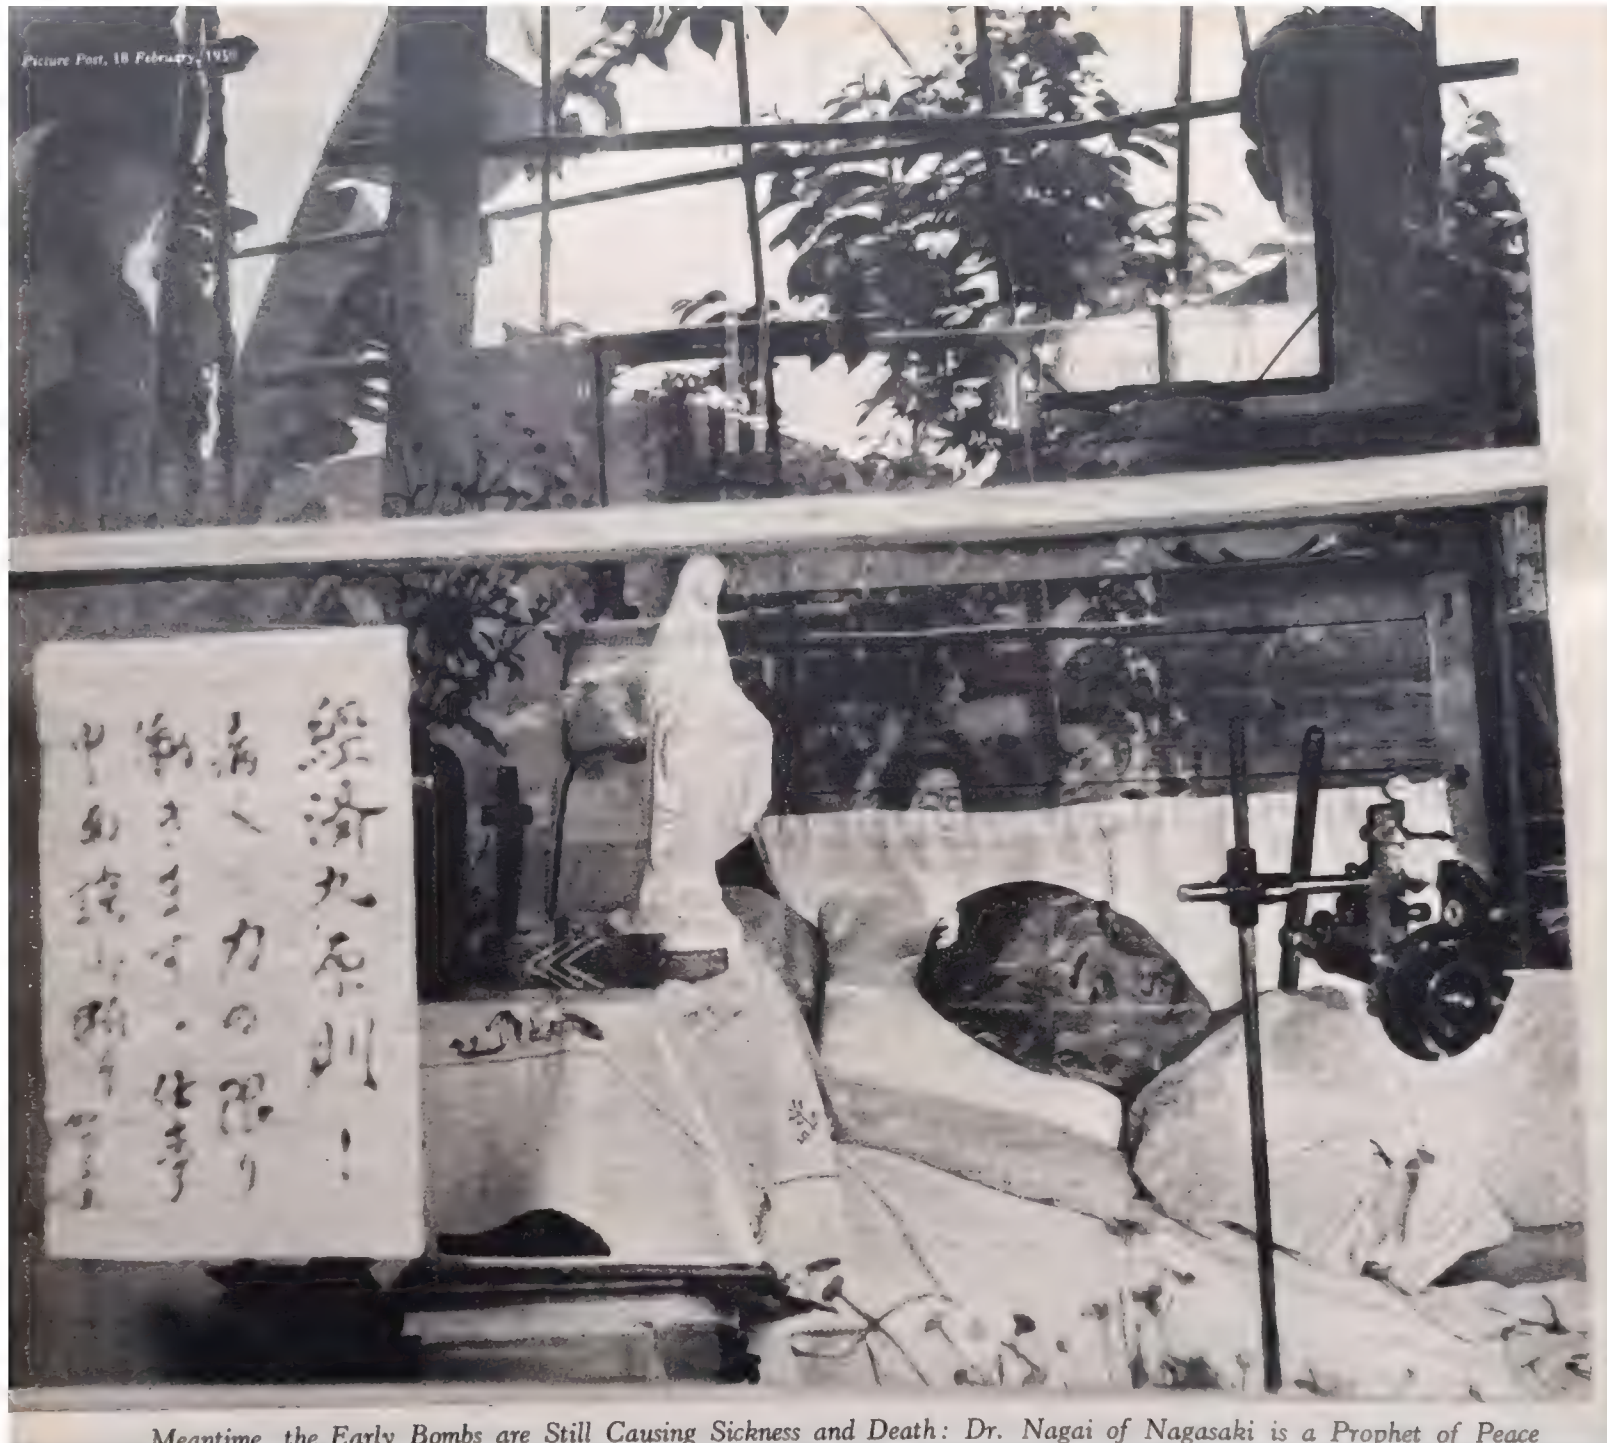 Picture Post, 18 February, 1950
経済九原則!
病人 力の限り
働きます。仕事
中面談
Meantime, the Early Bombs are Still Causing Sickness and Death: Dr. Nagai of Nagasaki is a Prophet of Peace